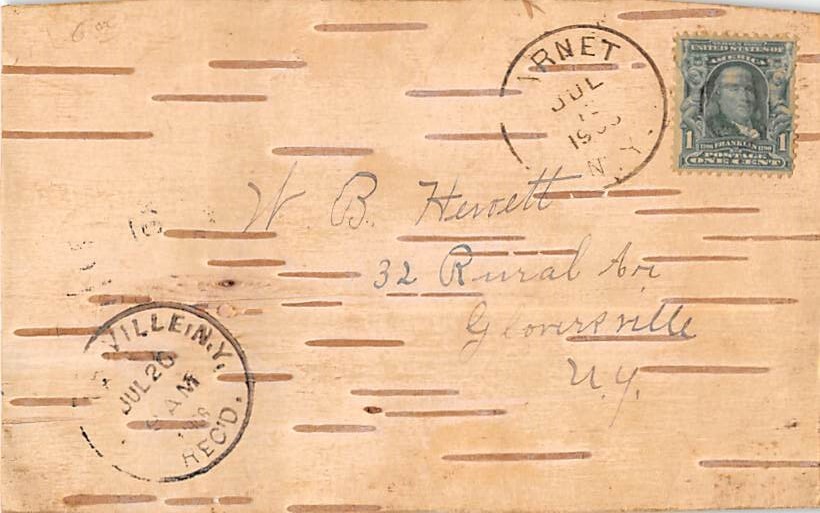 RNET
JUL
190
N.Y.
UNITED STATES OF
AMERICA
1 1
FRANKLIN
POSTAGE
ONE CENT
W B. Hewett
32 Rural Av
Gloversville
N.Y.
VILLE, N.Y.
JUL 20
AM
REC'D.